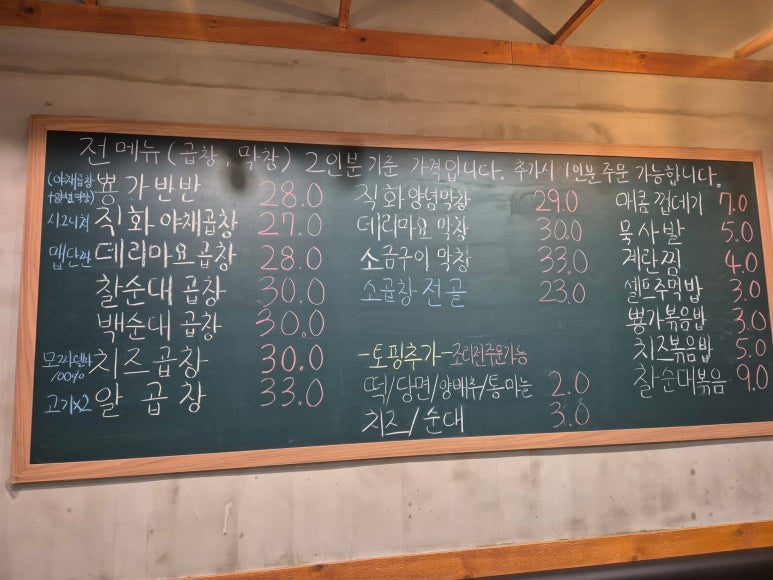 전메뉴 (곱창, 막창) 2인분 기준 가격입니다. 추가시 1인분 주문 가능합니다.
(야채곱창+양념막창) 뽕가반반 28.0
시그니쳐 직화 야채곱창 27.0
맵단짠 데리마요곱창 28.0
찰순대 곱창 30.0
백순대 곱창 30.0
모짜렐라 100% 치즈 곱창 30.0
고기x2 알 곱창 33.0
직화양념막창 29.0
데리마요 막창 30.0
소금구이 막창 33.0
소곱창 전골 23.0
-토핑추가- 조리전주문가능
떡/당면/양배추/통마늘 2.0
치즈/순대 3.0
매콤 껍데기 7.0
묵사발 5.0
계란찜 4.0
셀프주먹밥 3.0
뽕가볶음밥 3.0
치즈볶음밥 5.0
찰순대볶음 9.0